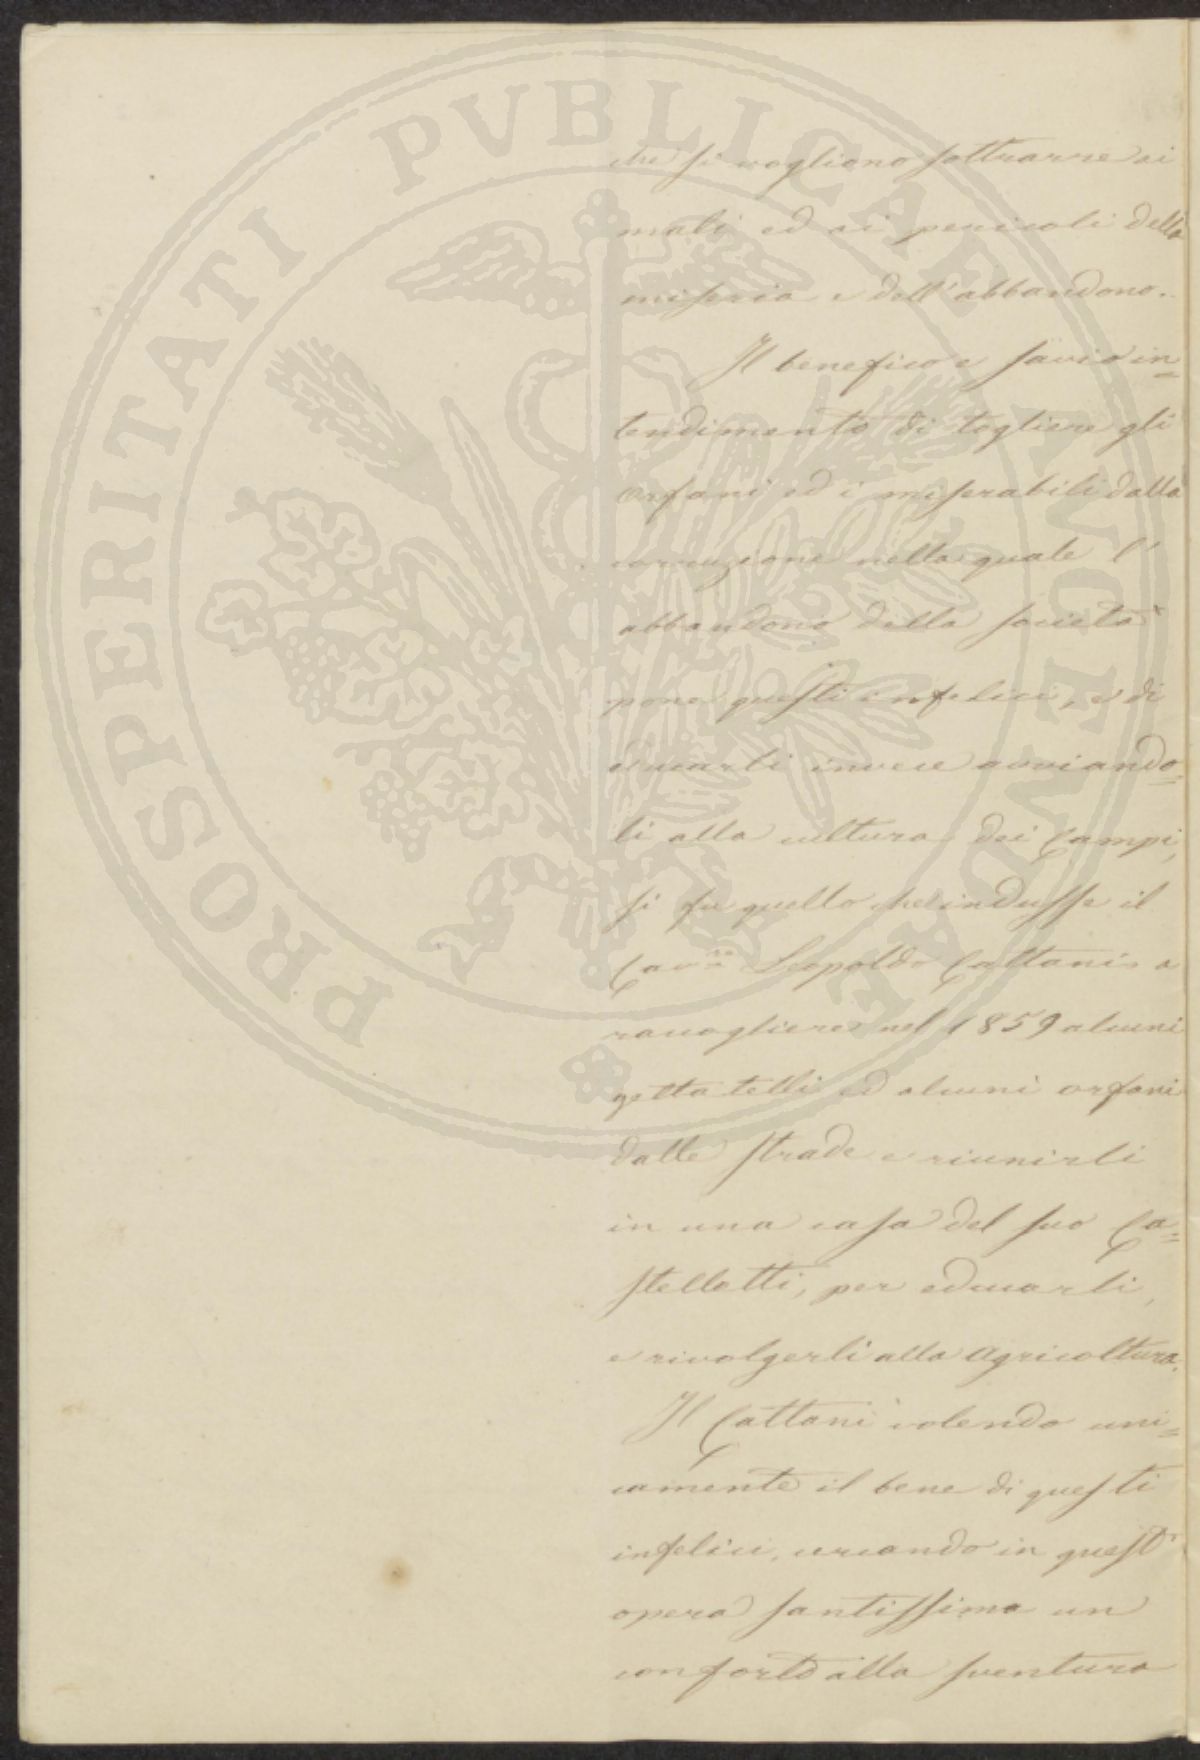 PROSPERITATI PVBLICAE AVGENDAE
che si vogliono sottrarre ai
mali ed ai pericoli della
miseria e dell'abbandono.
Il benefico e savio in=
tendimento di togliere gli
Orfani ed i miserabili dalla
corruzione nella quale l'
abbandono della società
pone questi infelici, e di
educarli invece avviando=
li alla cultura dei Campi,
si fu quello che indusse il
Cav.re Leopoldo Cattani a
raccogliere nel 1859 alcuni
gettatelli ed alcuni orfani
dalle strade e riunirli
in una casa del suo Ca=
stelletti, per educarli,
e rivolgerli alla Agricoltura.
Il Cattani volendo uni=
camente il bene di questi
infelici, cercando in quest'
opera santissima un
conforto alla sventura